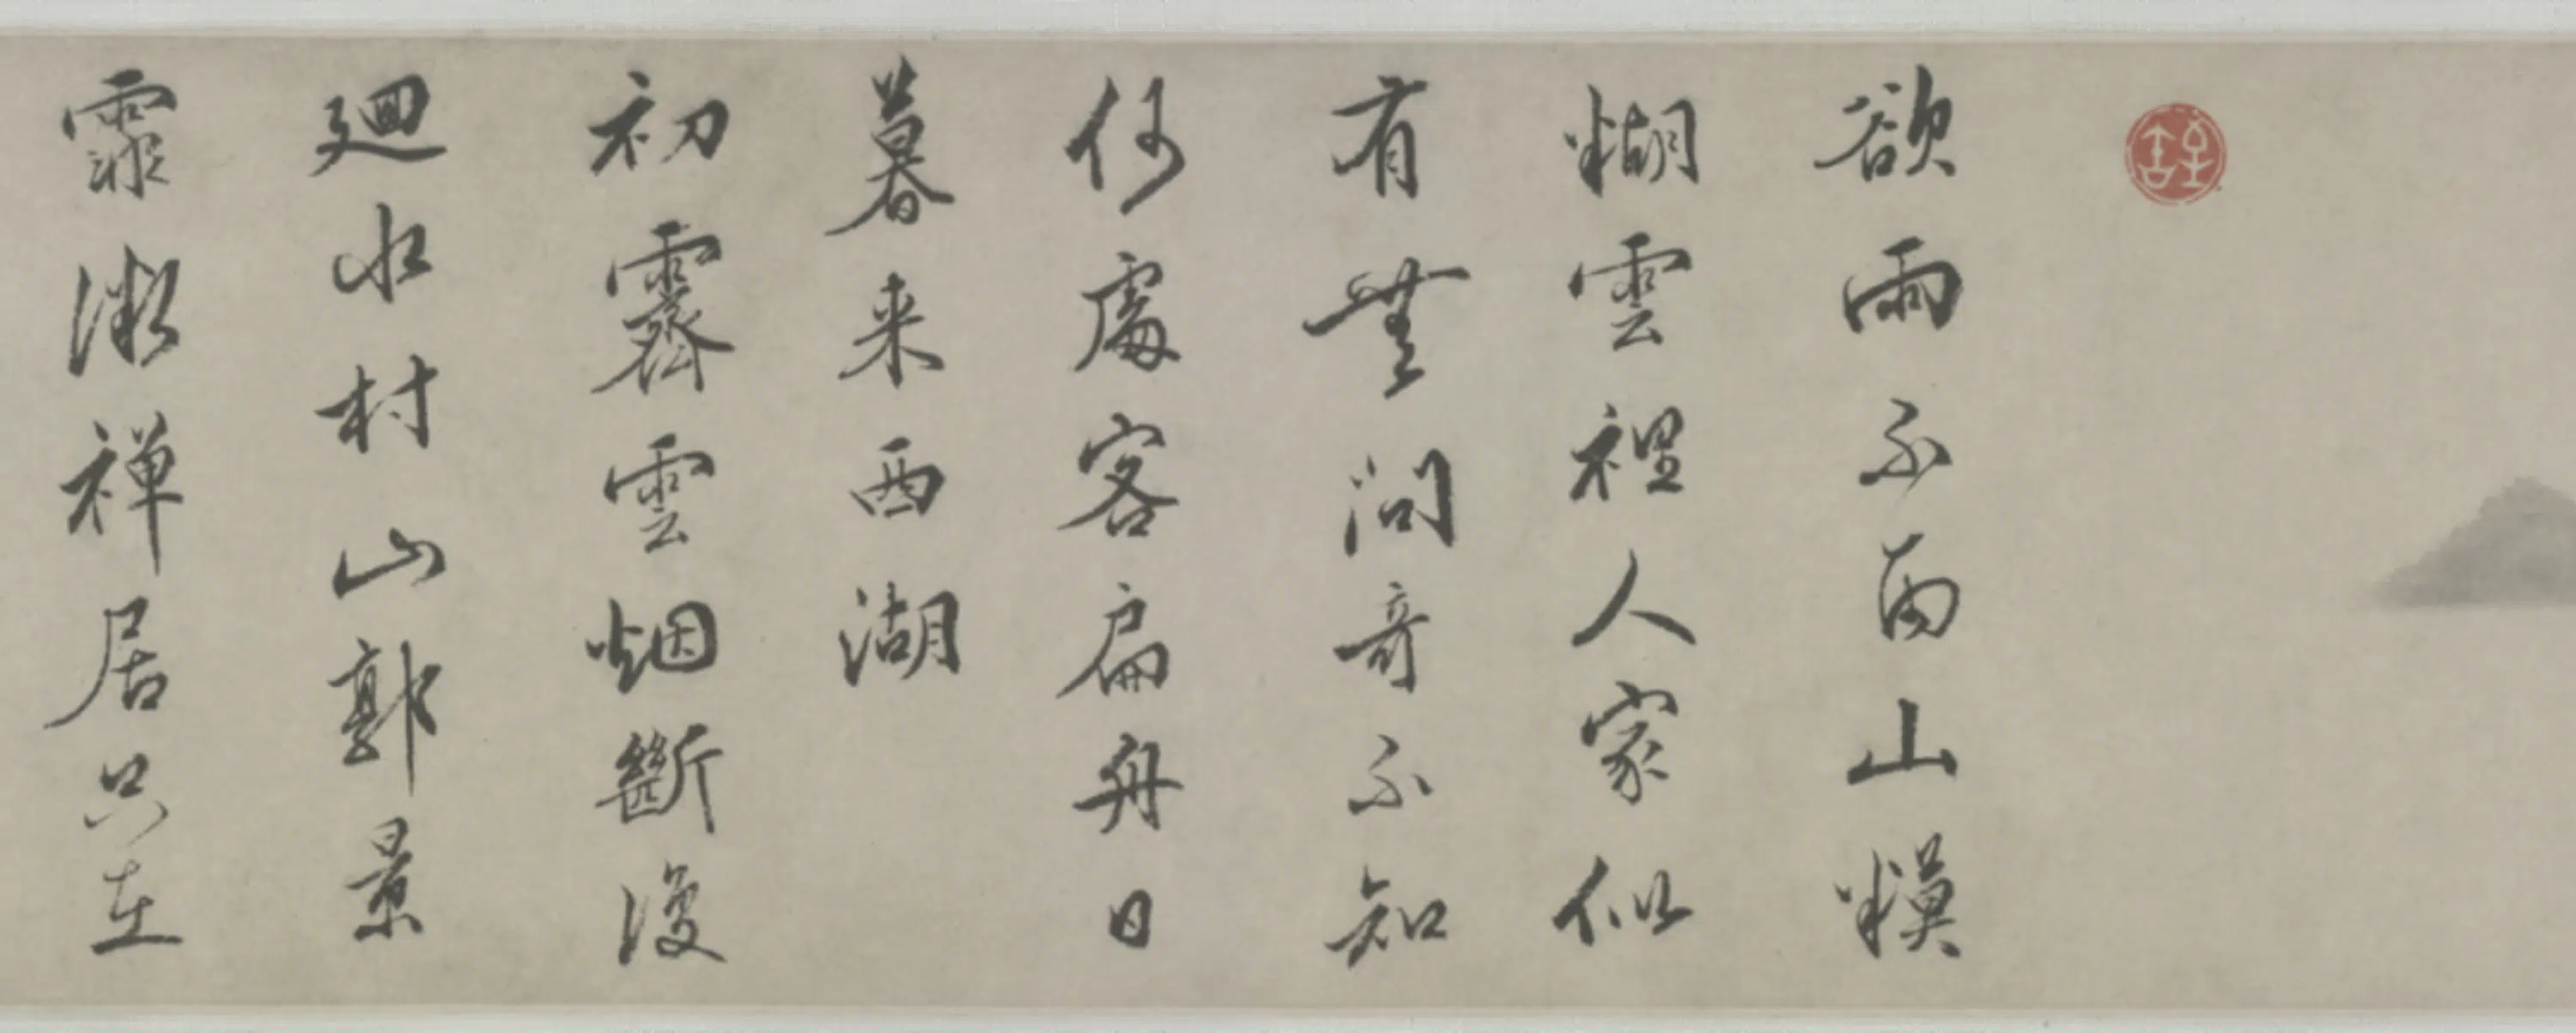 欲雨不雨山模
糊雲裡人家似
有無問奇不知
何處客扁舟日
暮来西湖
初霽雲烟斷復
廻水村山郭景
霏微禅居只在